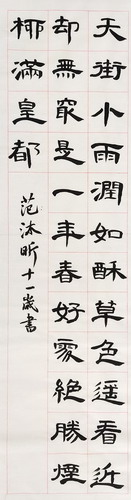 天街小雨潤如酥草色遥看近
却無最是一年春好處絶勝煙
柳滿皇都
范沐昕十一歲書